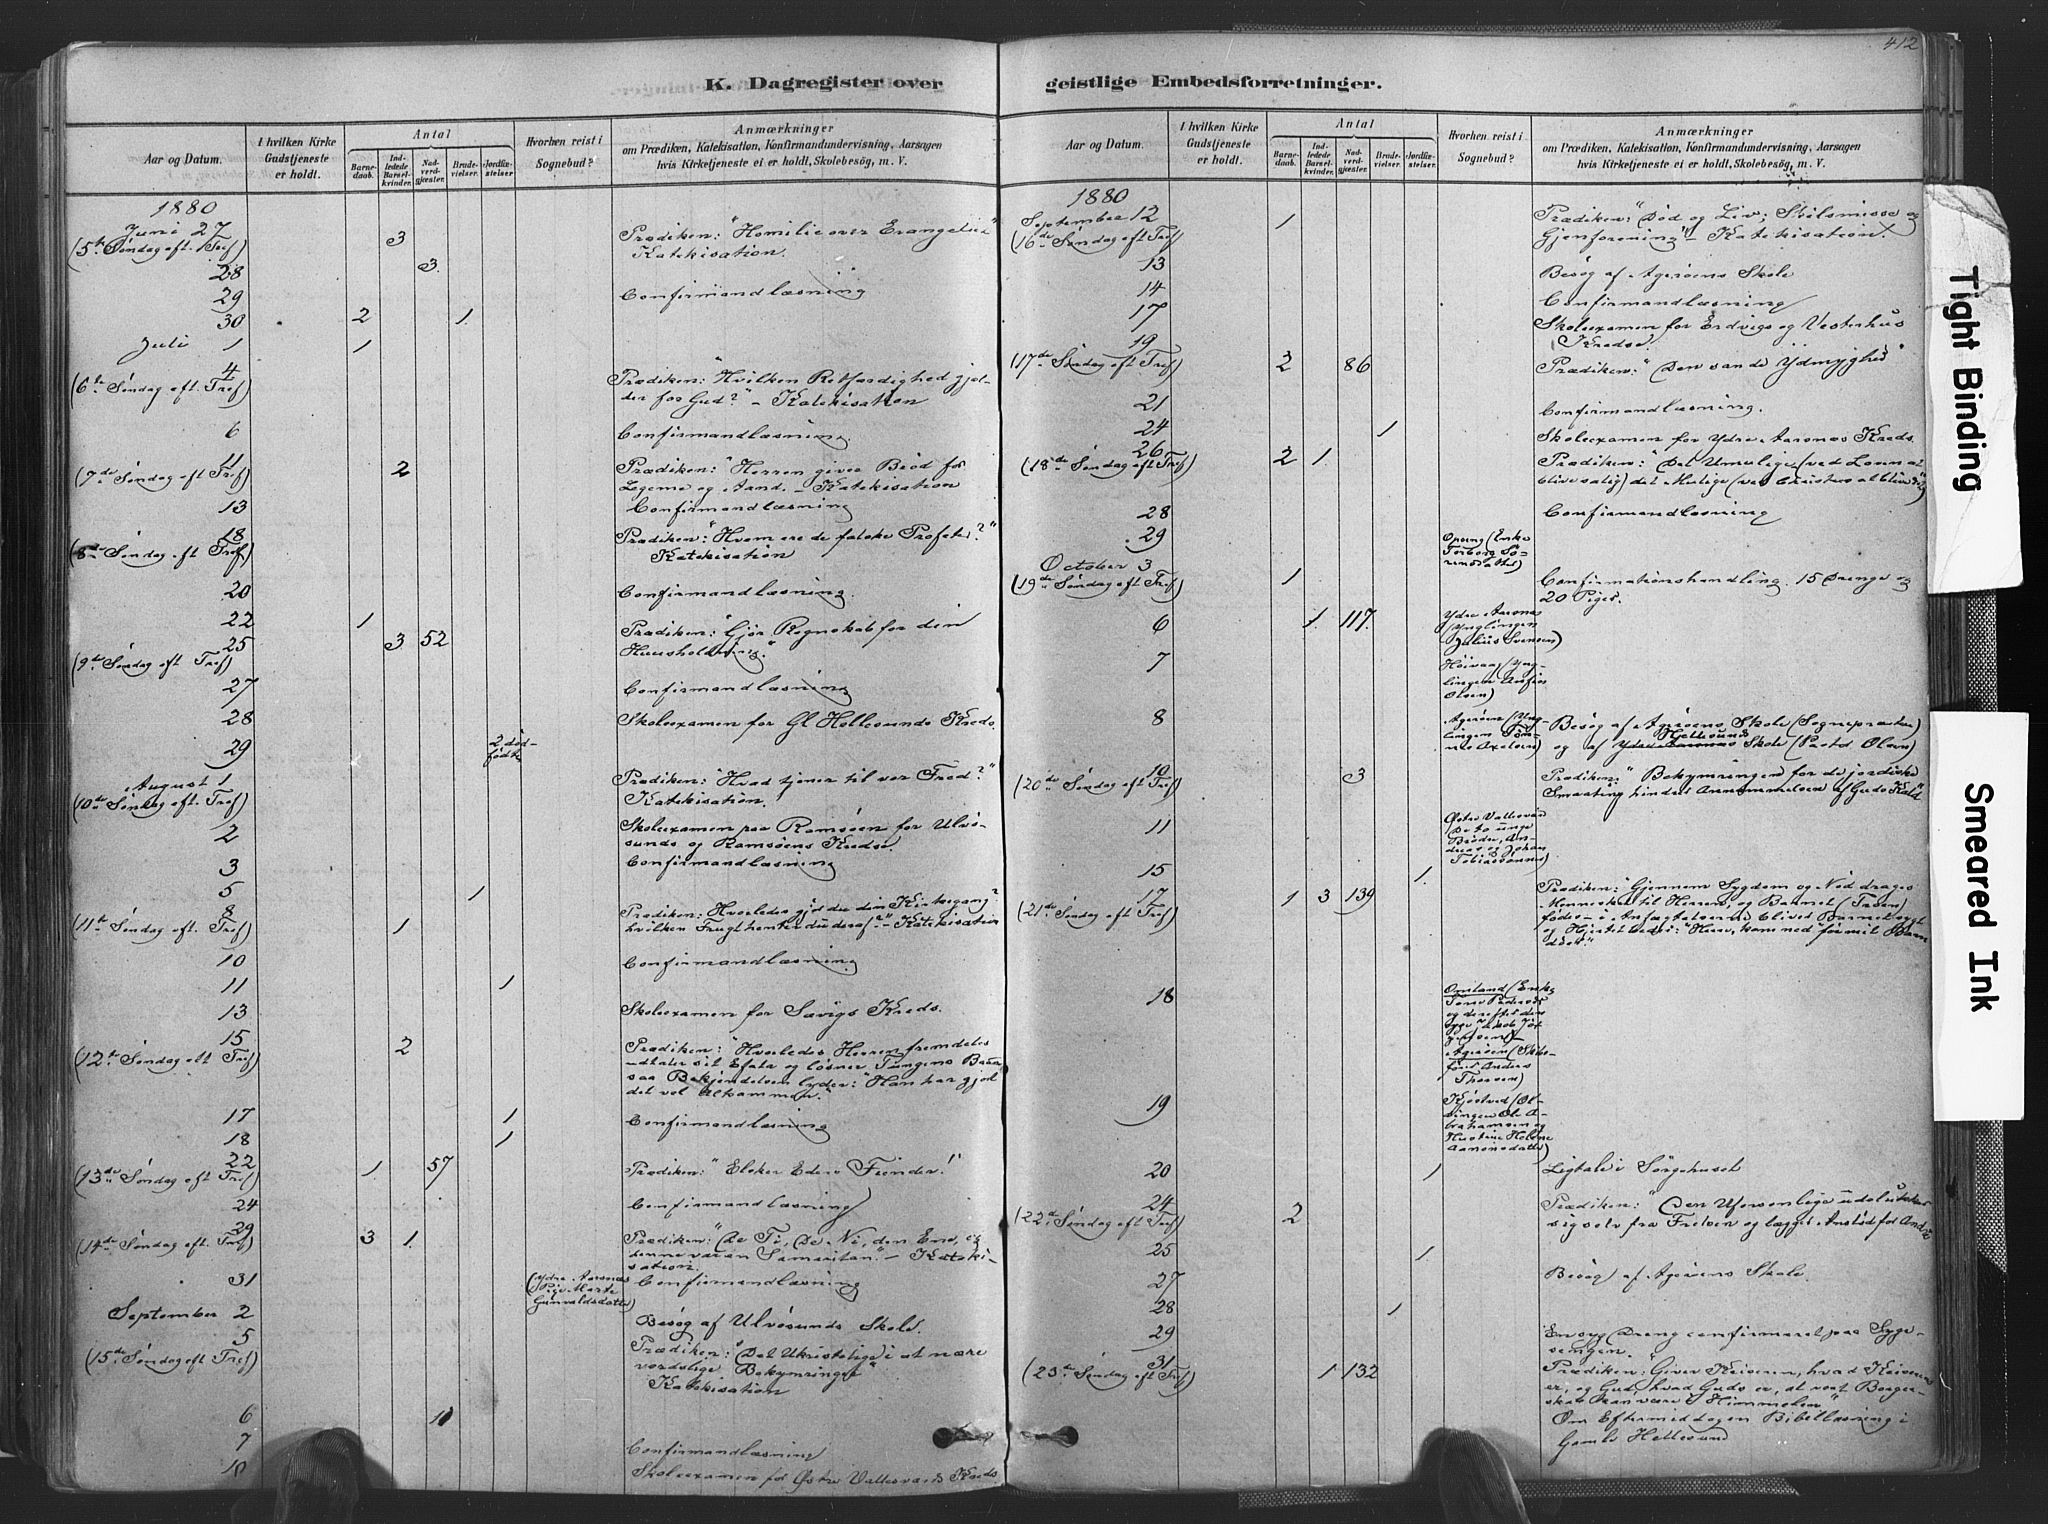 412
K. Dagregister over
Aar og Datum.
I hvilken Kirke Gudstjeneste er holdt.
Antal
Barnedaab.
Indledede Barselkvinder.
Nadverdgjæster.
Brudevielser.
Jordfæstelser
Hvorhen reist i Sognebud?
Anmærkninger
om Prædiken, Katekisation, Konfirmandundervisning, Aarsagen
hvis Kirketjeneste ei er holdt, Skolebesög, m. V.
1880
Juni 27
(5te Søndag eft. Tref) 3 Prædiken: "Homilie over Evangeliet"
Katekisation.
28 3.
29 Confirmandlæsning
30 2 1.
Juli 1 1
4
(6te Søndag eft. Tref) Prædiken: "Hvilken Retfærdighed gjel-
der for Gud?" – Katekisation
6 Confirmandlæsning.
11
(7de Søndag eft Tref) 2 Prædiken: "Herren giver Brød for
Legeme og Aand. – Katekisation
13 Confirmandlæsning
18
(8de Søndag eft Tref) Prædiken: "Hvem ere de falske Profeter?"
Katekisation
20 Confirmandlæsning.
22 1
25 3 52 Prædiken: "Gjør Regnskab for din
(9de Søndag eft Tref) Huusholdning."
27 Confirmandlæsning
28 Skoleexamen for Gl Hellesunds Kreds.
29 2 død-
fødte
August 1 Prædiken: "Hvad tjener til vor Fred?"
(10de Søndag eft. Tref) Katekisation.
2 Skoleexamen paa Ramsøen for Ulvø-
sunds og Ramsøens Kredse.
3 Confirmandlæsning
5 1
8 Prædiken: "Hvorledes gjør du din Kirkegang?
(11te Søndag eft. Tref) 1 hvilken Frugt henter du deraf?" – Katekisation
10 Confirmandlæsning
11 1
13 Skoleexamen for Sævigs Kreds.
15
(12te Søndag eft Tref) 2 Prædiken: "Hvorledes Herren fremdeles
udtaler sit Efata og løsner Tungens Baand
saa Bekjendelsen lyder: "Han har gjort
det vel Altsammen."
17 1 Confirmandlæsning
18 1
22
(13de Søndag eft Tref) 1. 57 Prædiken: "Elsker Eders Fiender!"
24 Confirmandlæsning
29
(14de Søndag eft. Tref) 3 1. Prædiken: "De Ti, De Ni, den Ene, og
denne var en Samaritan." – Kateki-
sation.
31 (Ydre Aarsnæs Pige Marte Gunvaldsdatter) Confirmandlæsning
September 2 Besøg af Ulvøsunds Skole.
5
(15de Søndag eft Tref) Prædiken: "Det Ukristelige i at nære
verdslige Bekymringer"
Katekisation
6 10
7 Confirmandlæsning
10 Skoleexamen for Østre Vallesværds Kreds.
geistlige Embedsforretninger.
Aar og Datum.
I hvilken Kirke Gudstjeneste er holdt.
Antal
Barnedaab.
Indledede Barselkvinder.
Nadverdgjæster.
Brudevielser.
Jordfæstelser.
Hvorhen reist i Sognebud?
Anmærkninger
om Prædiken, Katekisation, Konfirmandundervisning, Aarsagen
hvis Kirketjeneste ei er holdt, Skolebesög, m. V.
1880
September 12 1 Prædiken: "Død og Liv; Skilsmisse og
(16de Søndag eft Tref) Gjenforening" – Katekisation.
13 Besøg af Agerøens Skole
14 Confirmandlæsning
17 Skoleexamen for Eidvigs og Vesterhus
Kredse.
19
(17de Søndag eft Tref) 2 86 Prædiken: "Den sande Ydmyghed"
21 Confirmandlæsning.
24 1
26 Skoleexamen for Ydre Aarsnæs Kreds.
(18de Søndag eft Tref) 2 1. Prædiken: "Det Umulige (ved Loven at
blive salig) det Mulige (ved Christus at blive det)"
28 Confirmandlæsning
29 (Enke Torborg Sørensdatter)
October 3
(19de Søndag eft Tref) 1 Confirmationshandling. 15 Drenge og
20 Piger.
6 1. 117. Ydre Aarsnæs (Ynglingen Julius Svensen)
7 Høivaag (Ynglingen Olsen)
8 Agerøen (Ynglingen Axelsen) Besøg af Agerøens Skole (Sognepræsten)
og af Ydre Aarsnæs Hellesunds Skole (Pastor Olsen)
10
(20de Søndag eft Tref) 3 Prædiken: "Bekymringen for de jordiske
Smaating hindrer Annammelsen af Guds Kald"
11 Østre Vallesværd De to unge Brødre, Andreas og Johan Tobiassønner)
15 1.
17 1 3 139 Prædiken: "Gjennem Sygdom og Nød drages
(21de Søndag eft Tref) Mennesket til Herren, og Barnet (Troen)
fødes – i Anfægtelsen blives Barnet sygt
og Hjertet beder: "Herre, kom ned før mit Barn
døer."
18 Omland (Enke Pedersen og derefter den syge Jakob Jørgensen) Agerøen (Anders Thorsen)
19 Kjøstved (Olsingen Ole Abrahamsen og Hustru Helene Aanonsdatter)
20 1 Ligtale i Sørgehuset
24 Prædiken: "Den Uforsonlige udelukker
(22de Søndag eft Tref) 2 sig selv fra Frelsen og lægger Anstød for Andre"
25 1
27 Besøg af Agerøens Skole.
28 1
29 En syg Dreng confirmeret paa Syge-
sengen.
31
(23de Søndag eft Tref) 1 132 Prædiken: "Giver Keiseren, hvad Keiserens
er, og Gud, hvad Guds er, at vort Borger-
skab kan være i Himmelen"
Om Eftermiddagen Bibellæsning i
Gamle Hellesund
Tight Binding
Smeared Ink